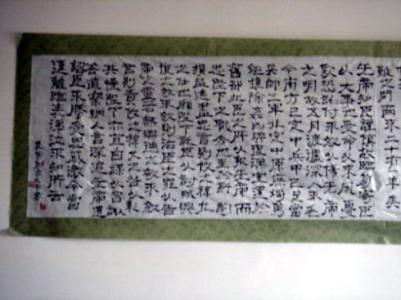 難之間爾來二十有一年矣
先帝知臣謹慎故臨崩寄臣
以大事也受命以來夙夜憂
歎恐託付不效以傷先帝
之明故五月渡瀘深入不毛
今南方已定兵甲已足當
帥三軍北定中原庶竭駑
鈍攘除姦凶興復漢室還於
舊都此臣所以報先帝而
忠陛下之職分也至於斟酌
損益進盡忠言則攸之禕允
之任也願陛下託臣以討賊興
復之效不效則治臣之罪以告先
帝之靈若無興德之言則
責攸之禕允等之慢以彰
其咎陛下亦宜自謀以諮諏
善道察納雅言深追先帝遺
詔臣不勝受恩感激今當
遠離臨表涕泣不知所云